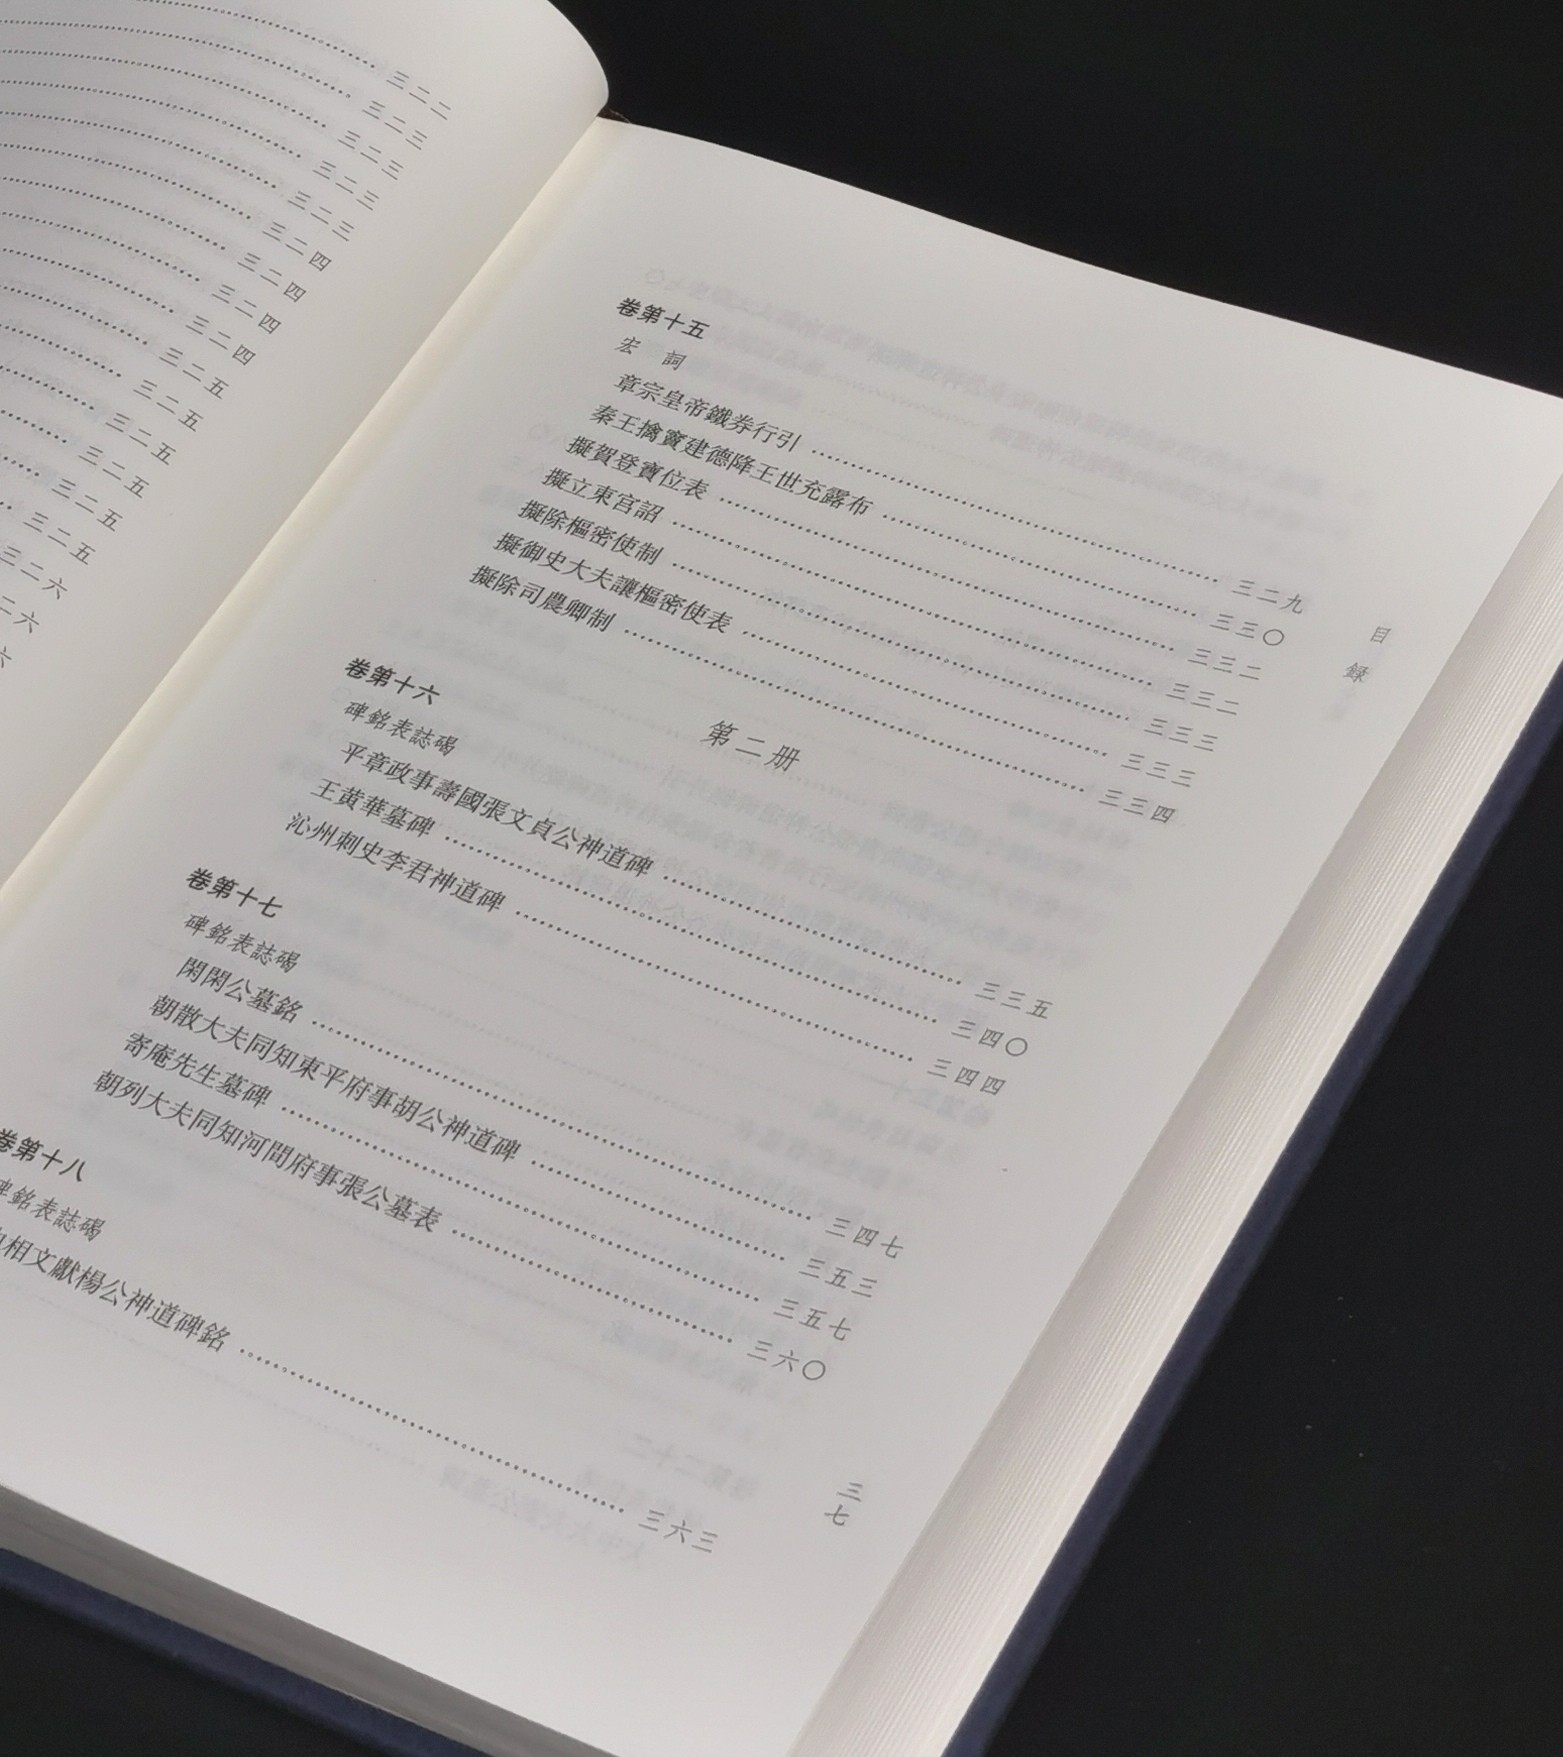 三二二
三二三
三二三
三二三
三二三
三二四
三二四
三二四
三二四
三二五
三二五
三二五
三二五
三二五
三二五
三二六
二六
六
卷第十五
宏 詞
章宗皇帝鐵券行引 三二九
秦王擒竇建德降王世充露布 三三〇
擬賀登寶位表 三三二
擬立東宮詔 三三二
擬除樞密使制 三三三
擬御史大夫讓樞密使表 三三三
擬除司農卿制 三三四
第二册
卷第十六
碑銘表誌碣
平章政事壽國張文貞公神道碑 三三五
王黄華墓碑 三四〇
沁州刺史李君神道碑 三四四
卷第十七
碑銘表誌碣
閑閑公墓銘 三四七
朝散大夫同知東平府事胡公神道碑 三五三
寄庵先生墓碑 三五七
朝列大夫同知河間府事張公墓表 三六〇
卷第十八
碑銘表誌碣
相文獻楊公神道碑銘 三六三
目録
三七